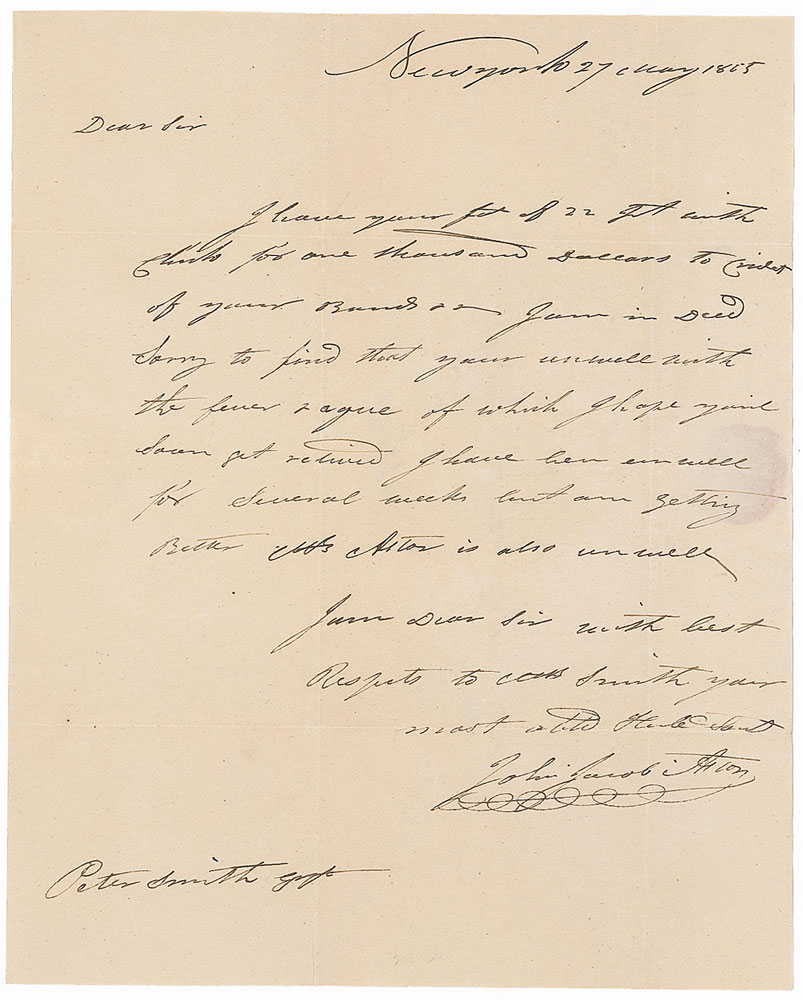 New york 27 May 18
Dear Sir
I have your of 22 with
Check for one thousand Dollars to Credet
of your I am in Deed
Sorry to find that your unwell with
the fever & ague of which I hope youl
Soon get relived I have ben unwell
for Several weeks but am getting
Better Mrs Astor is also unwell
I am Dear Sir with best
Respets to Mrs Smith your
most Humb Sert
John Jacob Astor
Peter Smith